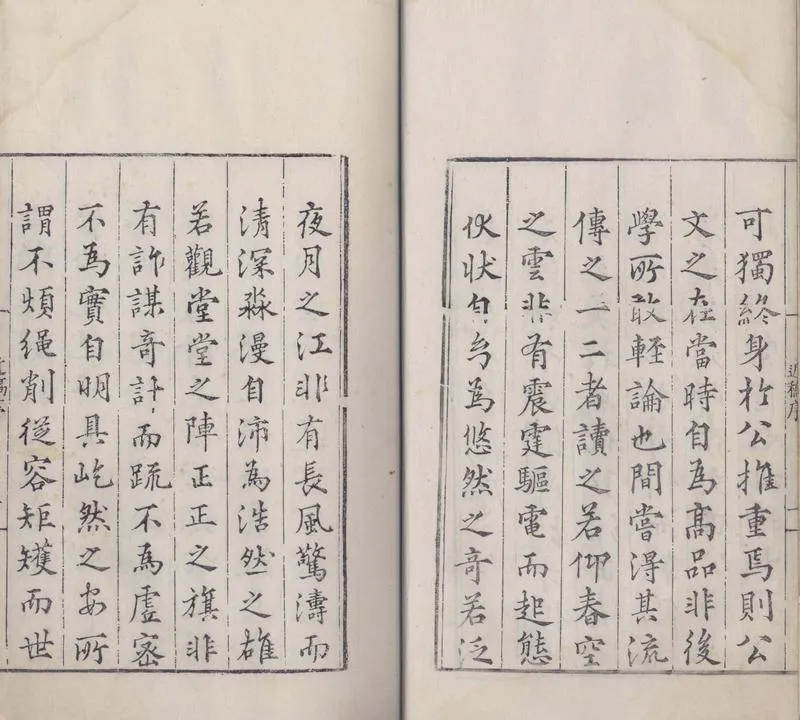 可獨終身於公推重焉則公
文之在當時自為高品非後
學所敢輕論也間嘗得其流
傳之一二者讀之若仰春空
之雲非有震霆驅電而起態
伏狀自為悠然之奇若泛
夜月之江非有長風驚濤而
清深淼漫自沛為浩然之雄
若觀堂堂之陣正正之旗非
有詐謀奇計而疏不為虛密
不為實自明具屹然之安所
謂不煩繩削從容矩矱而世
近稿序